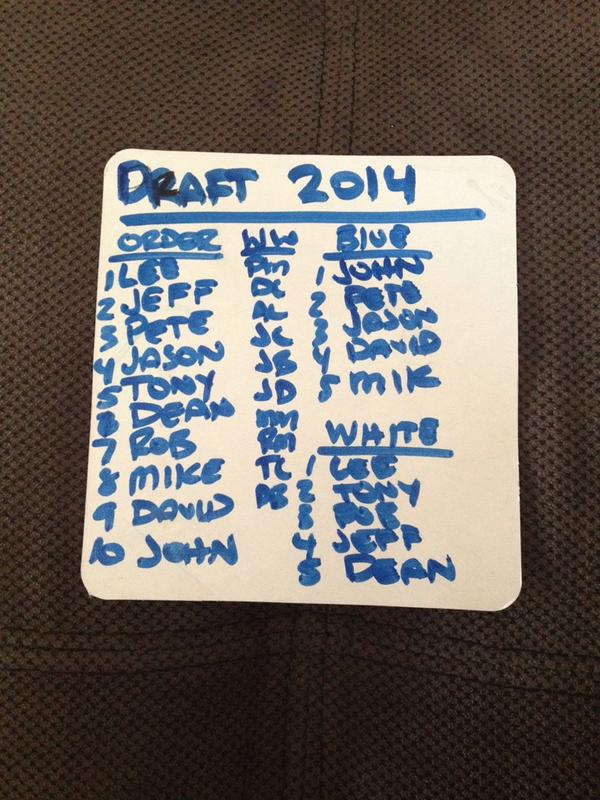 DRAFT 2014
ORDER
1 LEE
2 JEFF
3 PETE
4 JASON
5 TONY
6 DEAN
7 ROB
8 MIKE
9 DAVID
10 JOHN
WW
PM
DL
JC
JB
JD
MM
RM
TL
DB
BLUE
1 JOHN
2 PETE
3 JASON
4 DAVID
5 MIK
WHITE
1 LEE
2 TONY
3 ROB
4 JEFF
5 DEAN